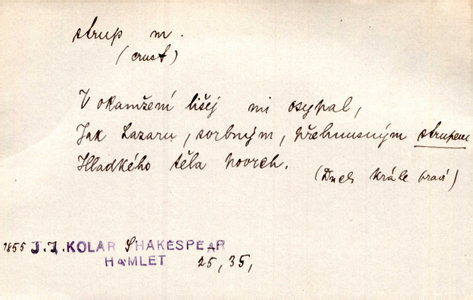 strup m.
(crust)
V okamžení lišej mi osypal,
Jak Lazaru, sorbným, přehnusným strupem
Hladkého těla povrch. (Duch krále praví)
1855 J.J.KOLÁR SHAKESPEAR
HAMLET 25, 35,